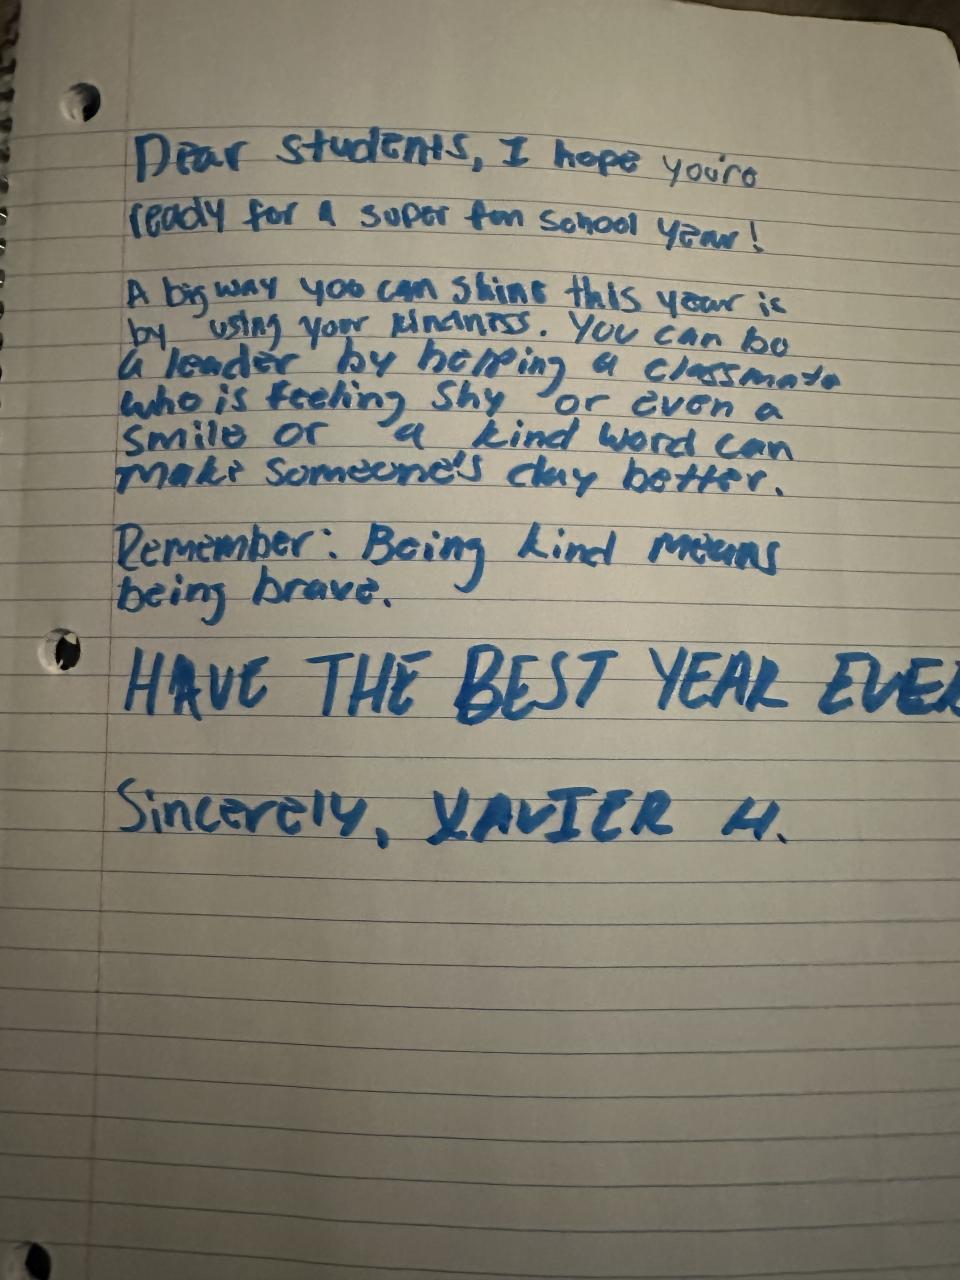 Dear students, I hope you're
ready for a super fun school year!
A big way you can shine this year is
by using your kindness. You can be
a leader by helping a classmate
who is feeling shy or even a
smile or a kind word can
make someone's day better.
Remember: Being kind means
being brave.
HAVE THE BEST YEAR EVER
Sincerely, XAVIER H.